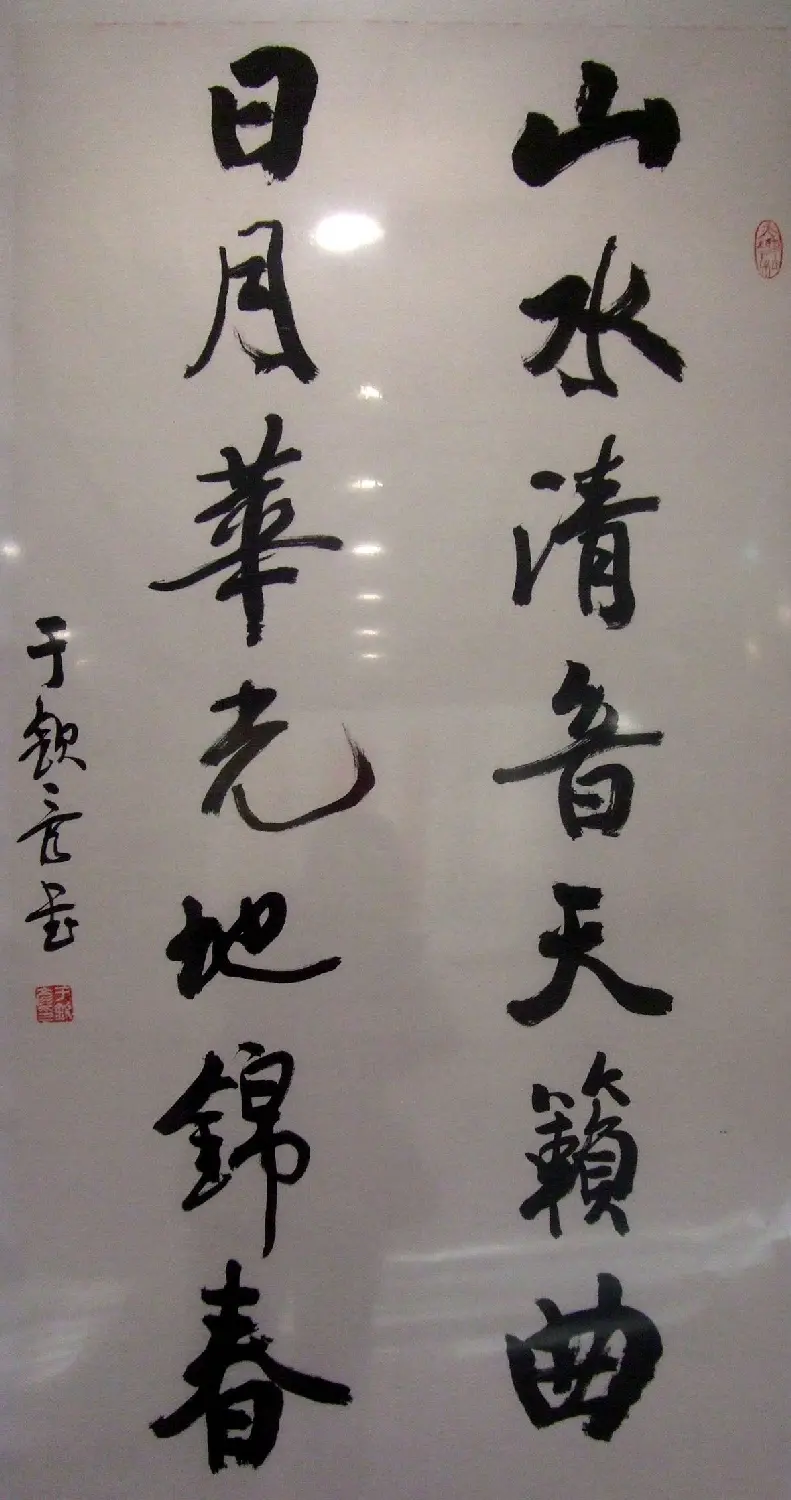 山水清音天籟曲
日月華光地錦春
于欽彥書